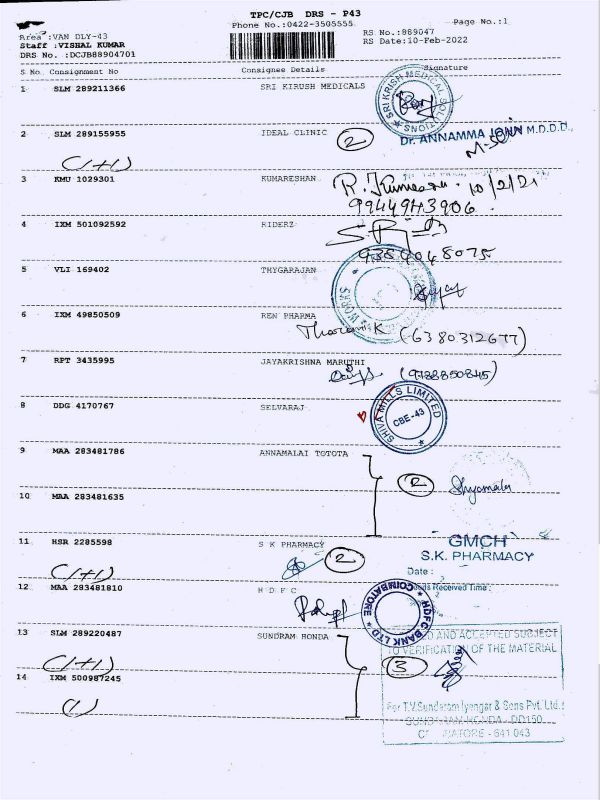 TPC/CJB DRS - P43
Phone No.:0422-3505555
Page No.:1
Area :VAN DLY-43
RS No.:889047
Staff :VISHAL KUMAR
RS Date:10-Feb-2022
DRS No. :DCJB88904701
S No Consignment No Consignee Details Signature
1 SLM 289211366 SRI KIRUSH MEDICALS
SRI KRISH MEDICAL SOLUTIONS
2 SLM 289155955 IDEAL CLINIC 2
Dr. ANNAMMA JOHN M.D.D.D.,
(1+1)
3 KMU 1029301 KUMARESHAN
10/2/21
4 IXM 501092592 RIDERZ
5 VLI 169402 THYGARAJAN
WORKS
6 IXM 49850509 REN PHARMA
(6380312677)
7 RPT 3435995 JAYAKRISHNA MARUTHI
8 DDG 4170767 SELVARAJ
SHIVA MILLS LIMITED
CBE-43
9 MAA 283481786 ANNAMALAI TOTOTA
2 Shyamala
10 MAA 283481635
11 HSR 2285598 S K PHARMACY 2
GMCH
S.K. PHARMACY
Date :
(1+1)
12 MAA 283481810 H D F C
Received Time :
HDFC BANK LTD COIMBATORE
13 SLM 289220487 SUNDRAM HONDA
AND ACCEPTED SUBJECT
TO VERIFICATION OF THE MATERIAL
(1+1)
3
14 IXM 500987245
For T.V.Sundaram Iyengar & Sons Pvt. Ltd.
(1)
641 043